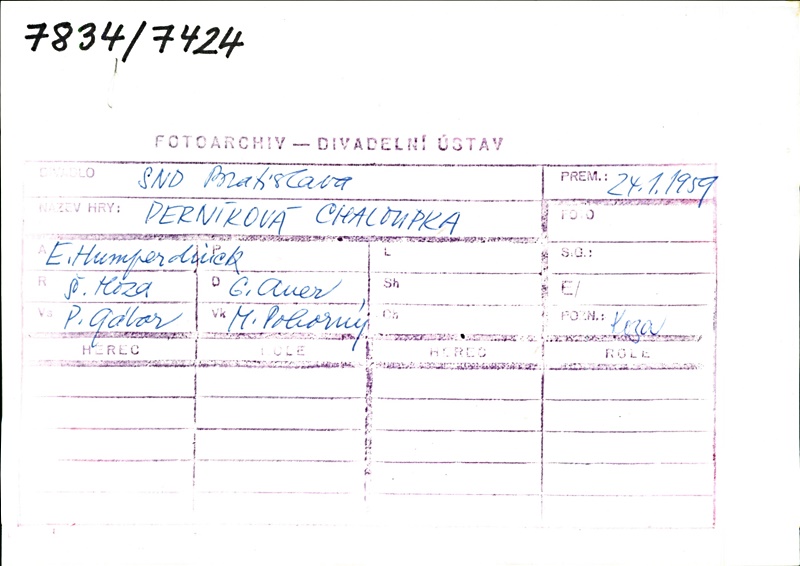 7834/7424
FOTOARCHIV — DIVADELNÍ ÚSTAV
DIVADLO SND Bratislava PREM.: 24.1.1959
NÁZEV HRY: PERNÍKOVÁ CHALOUPKA FOTO
A E. Humperdinck P L S.G.:
R Š. Hoza D G. Auer Sh E/
Vs P. Gábor Vk M. Pokorný Ch POZN.:
HEREC ROLE HEREC ROLE